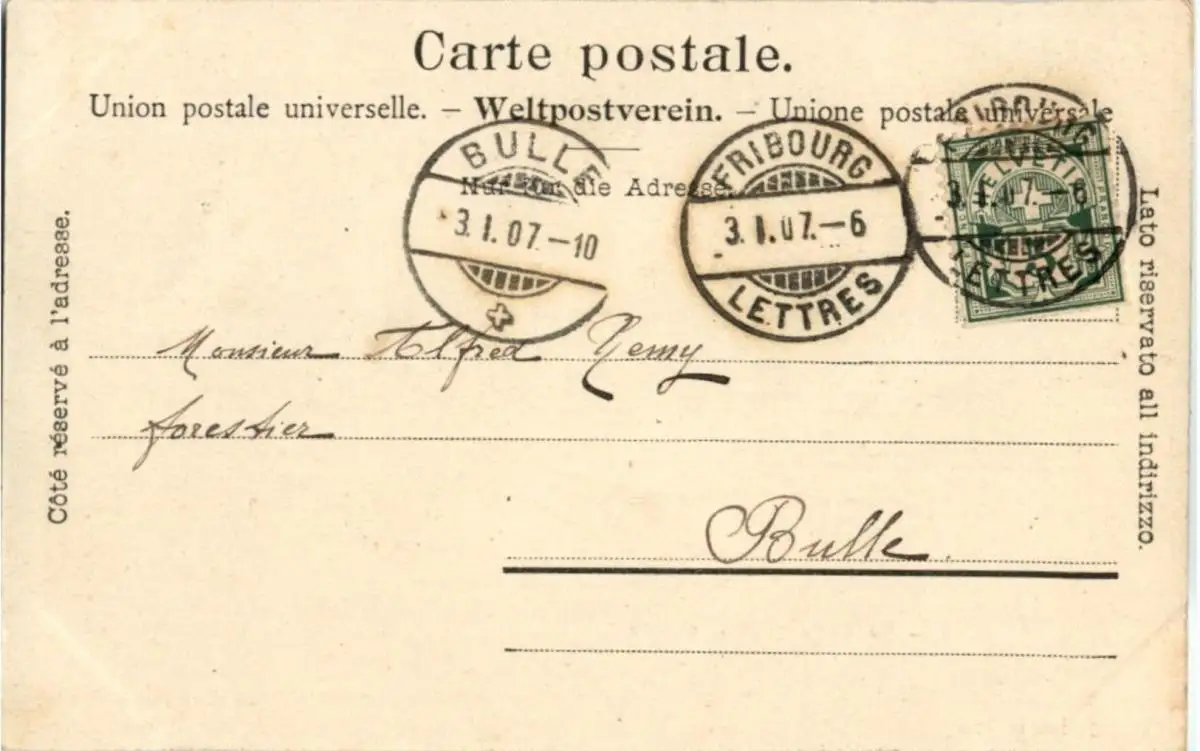 Carte postale.
Union postale universelle. – Weltpostverein. – Unione postale universale
Nur für die Adresse.
BULLE
3. I. 07.–10
FRIBOURG
3. I. 07.–6
LETTRES
FRIBOURG
HELVETIA
3. I. 07.–6
LETTRES
Côté réservé à l'adresse.
Lato riservato all indirizzo.
Monsieur Alfred Remy
forestier
Bulle.